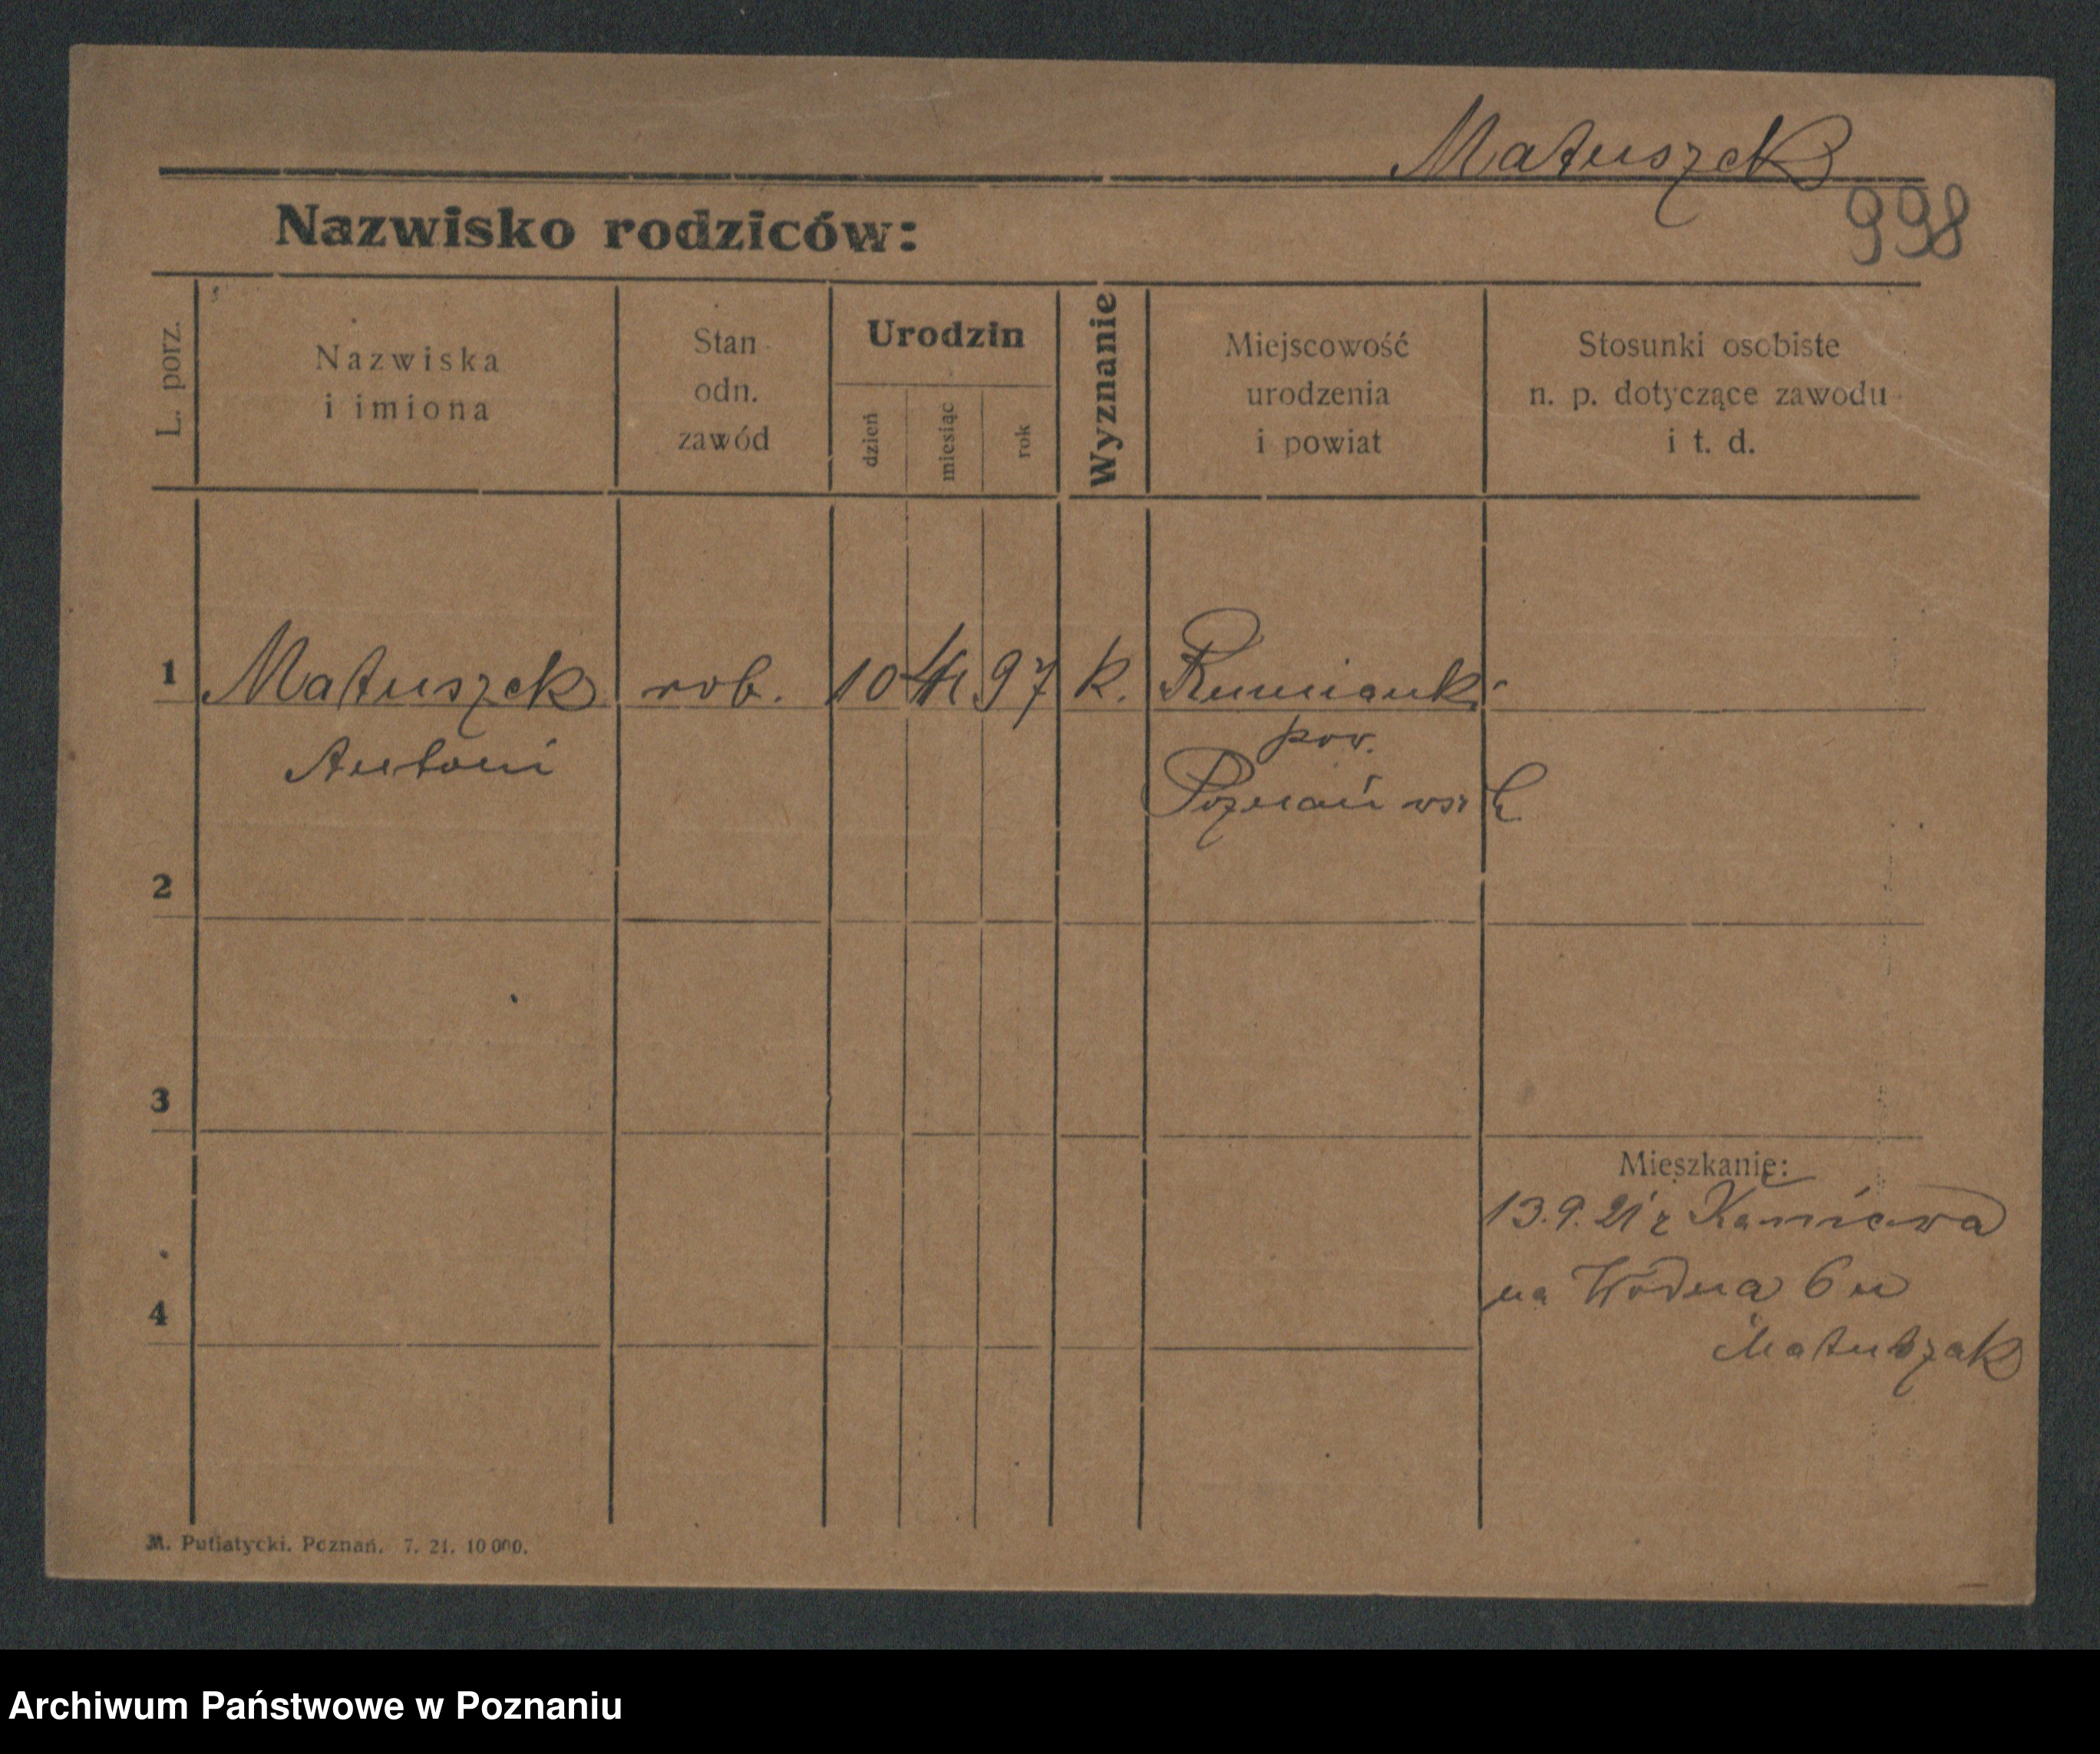 Matuszek
998
Nazwisko rodziców:
L. porz.
Nazwiska
i imiona
Stan
odn.
zawód
Urodzin
dzień
miesiąc
rok
Wyznanie
Miejscowość
urodzenia
i powiat
Stosunki osobiste
n. p. dotyczące zawodu
i t. d.
1 Matuszek rob. 10 97 k.
Antoni
pow.
Poznań wsch.
2
3
4
Mieszkanie:
13.9.21 z
na Wodna 6 u
Matuszak
M. Putiatycki. Poznań. 7. 21. 10 000.
Archiwum Państwowe w Poznaniu